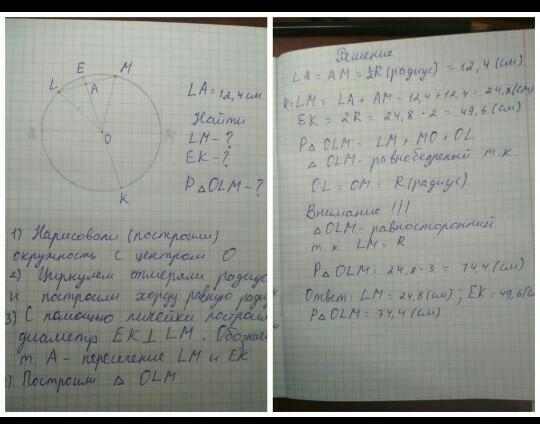 E
M
L
A
O
K
LA = 12,4 см
Найти
LM - ?
EK - ?
P△OLM - ?
1) Нарисовали (построили)
окружность с центром O
2) Циркулем отмеряли радиус
и построили хорду равную
3) С помощью линейки
диаметр EK ⊥ LM.
т. A - пересечение LM и EK
) Построили △ OLM
Решение
LA = AM = ½R (радиус) = 12,4 (см)
R = LM = LA + AM = 12,4 + 12,4 = 24,8 (см)
EK = 2R = 24,8 · 2 = 49,6 (см)
P△OLM = LM + MO + OL
△ OLM - равнобедреный т.к.
OL = OM = R (радиус)
Внимание !!!
△OLM - равносторонний
т.к LM = R
P△OLM = 24,8 · 3 = 74,4 (см)
Ответ: LM = 24,8 (см) ; EK = 49,6 (см
P△OLM = 74,4 (см)